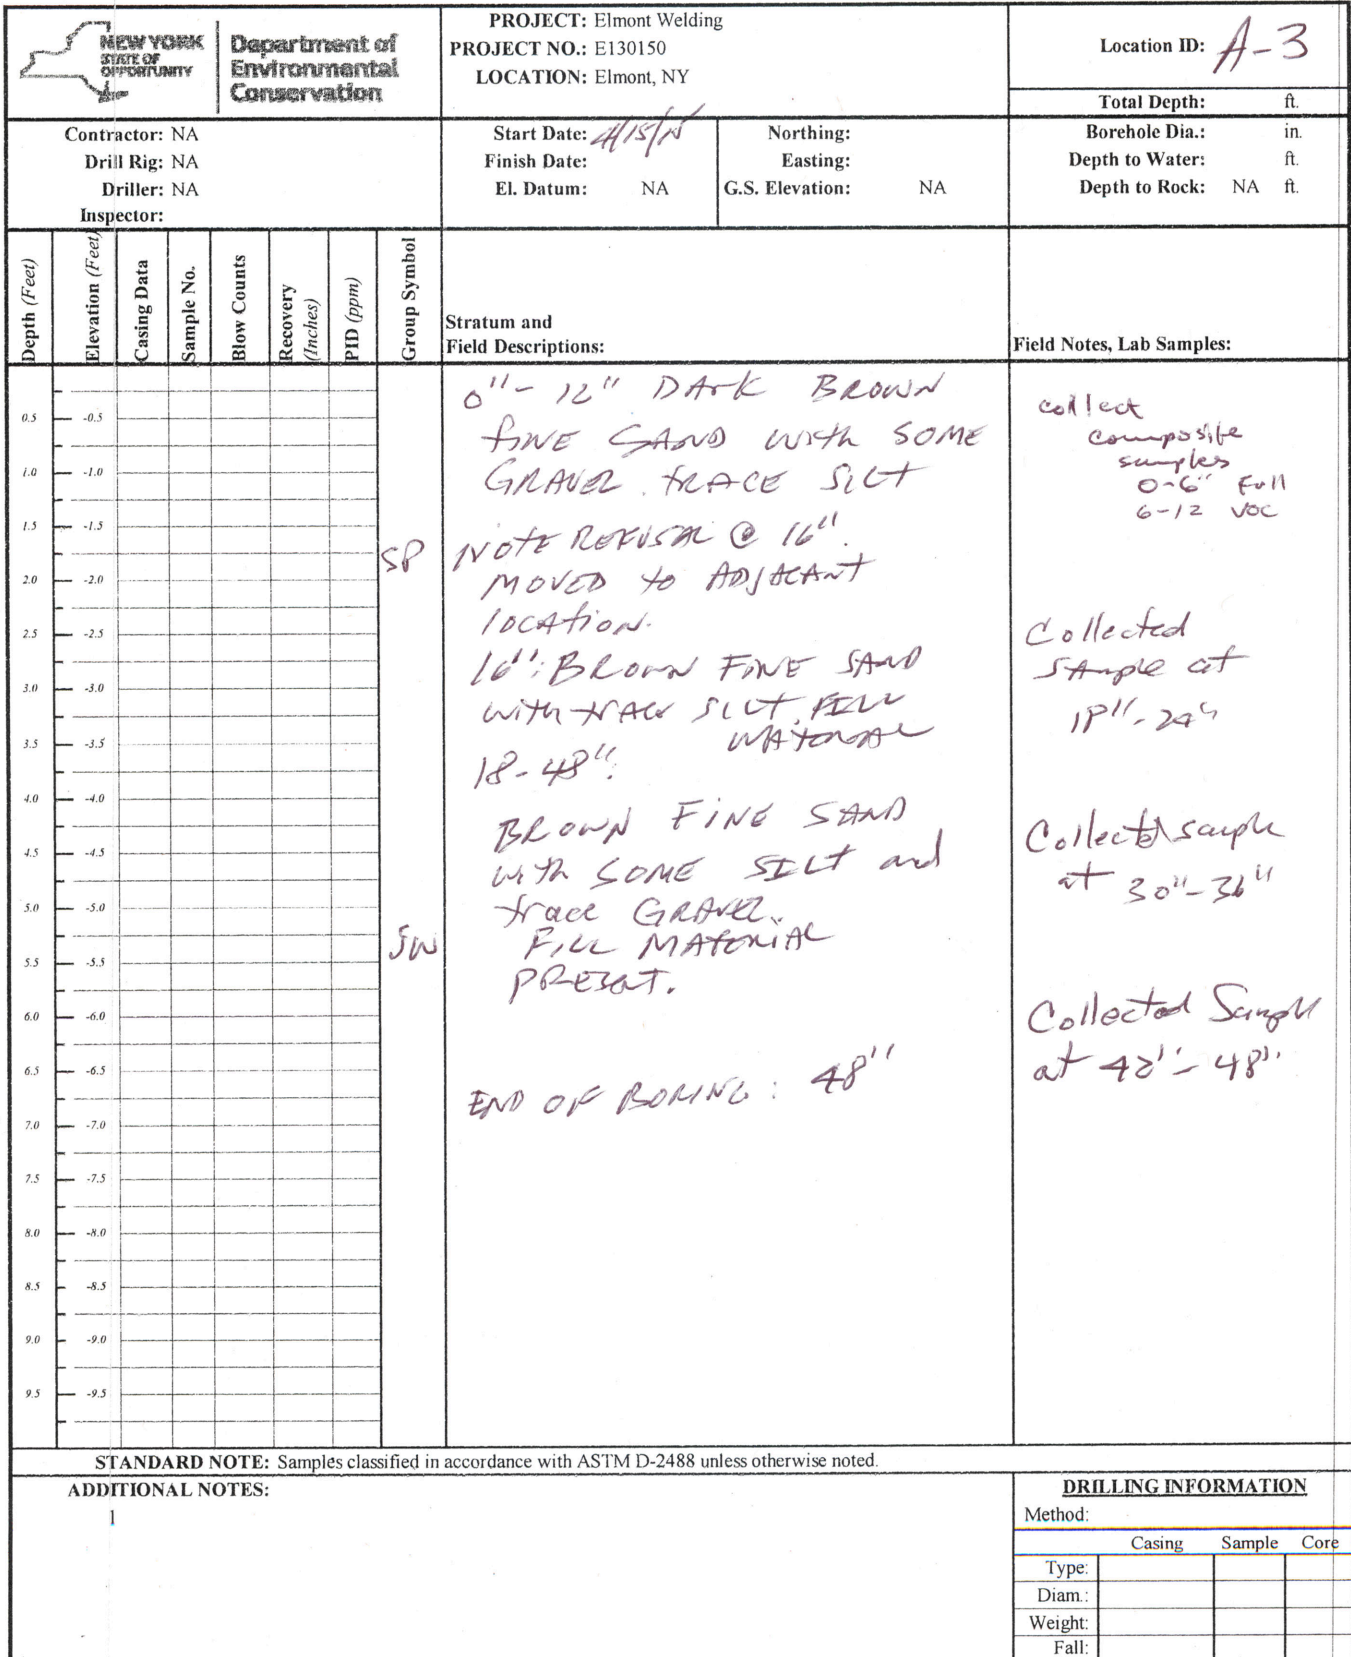 NEW YORK
STATE OF
OPPORTUNITY
Department of
Environmental
Conservation
PROJECT: Elmont Welding
PROJECT NO.: E130150
LOCATION: Elmont, NY
Location ID: A-3
Total Depth: ft.
Contractor: NA
Drill Rig: NA
Driller: NA
Inspector:
Start Date:
Finish Date:
El. Datum: NA
Northing:
Easting:
G.S. Elevation: NA
Borehole Dia.: in.
Depth to Water: ft.
Depth to Rock: NA ft.
Depth (Feet)
Elevation (Feet)
Casing Data
Sample No.
Blow Counts
Recovery
(Inches)
PID (ppm)
Group Symbol
Stratum and
Field Descriptions:
Field Notes, Lab Samples:
0.5 -0.5
1.0 -1.0
1.5 -1.5
2.0 -2.0
2.5 -2.5
3.0 -3.0
3.5 -3.5
4.0 -4.0
4.5 -4.5
5.0 -5.0
5.5 -5.5
6.0 -6.0
6.5 -6.5
7.0 -7.0
7.5 -7.5
8.0 -8.0
8.5 -8.5
9.0 -9.0
9.5 -9.5
SP
SW
0"- 12" DArk BROWN
fINE SAND with SOME
GRAVEL. tRACE SILT
NOTE REFUSAL @ 16".
MOVED to ADJACANT
lOCAtiON.
16": BROWN FINE SAND
with trAce SILT. FILL
MATERIAL
18-48".
BROWN FINE SAND
with SOME SILT and
trace GRAVEL.
FILL MATERIAL
PRESENT.
END OF BORING: 48"
collect
composite
samples
0-6" Full
6-12 VOC
Collected
SAmple at
18"-24"
Collected sample
at 30"-36"
Collected Sample
at 42"-48".
STANDARD NOTE: Samples classified in accordance with ASTM D-2488 unless otherwise noted.
ADDITIONAL NOTES:
1
DRILLING INFORMATION
Method:
Casing Sample Core
Type:
Diam.:
Weight:
Fall: